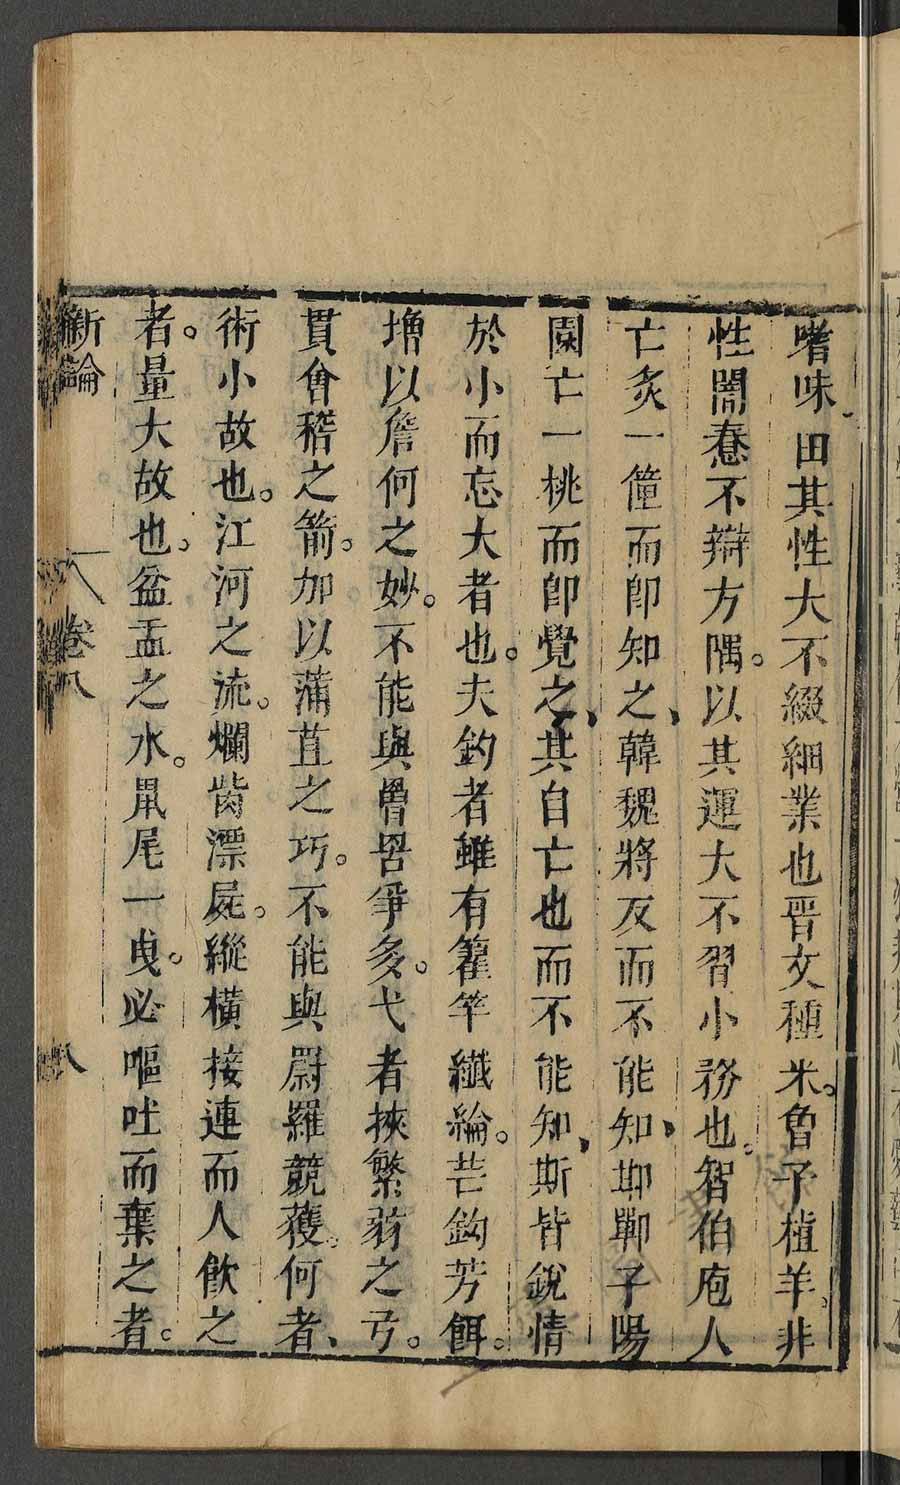 嗜味田其性大不綴細業也晉文種米魯子植羊非
性闇惷不辯方隅以其運大不習小務也智伯庖人
亡炙一篋而卽知之韓魏將反而不能知邯鄲子陽
園亡一桃而卽覺之其自亡也而不能知斯皆銳情
於小而忘大者也夫釣者雖有籊竿纖綸芒鈎芳餌
增以詹何之妙不能與罾罟爭多弋者挾繁弱之弓
貫會稽之箭加以蒲苴之巧不能與罻羅競獲何者
術小故也江河之流爛胔漂屍縱橫接連而人飲之
者量大故也盆盂之水鼠尾一曳必嘔吐而棄之者
新論 卷八 八